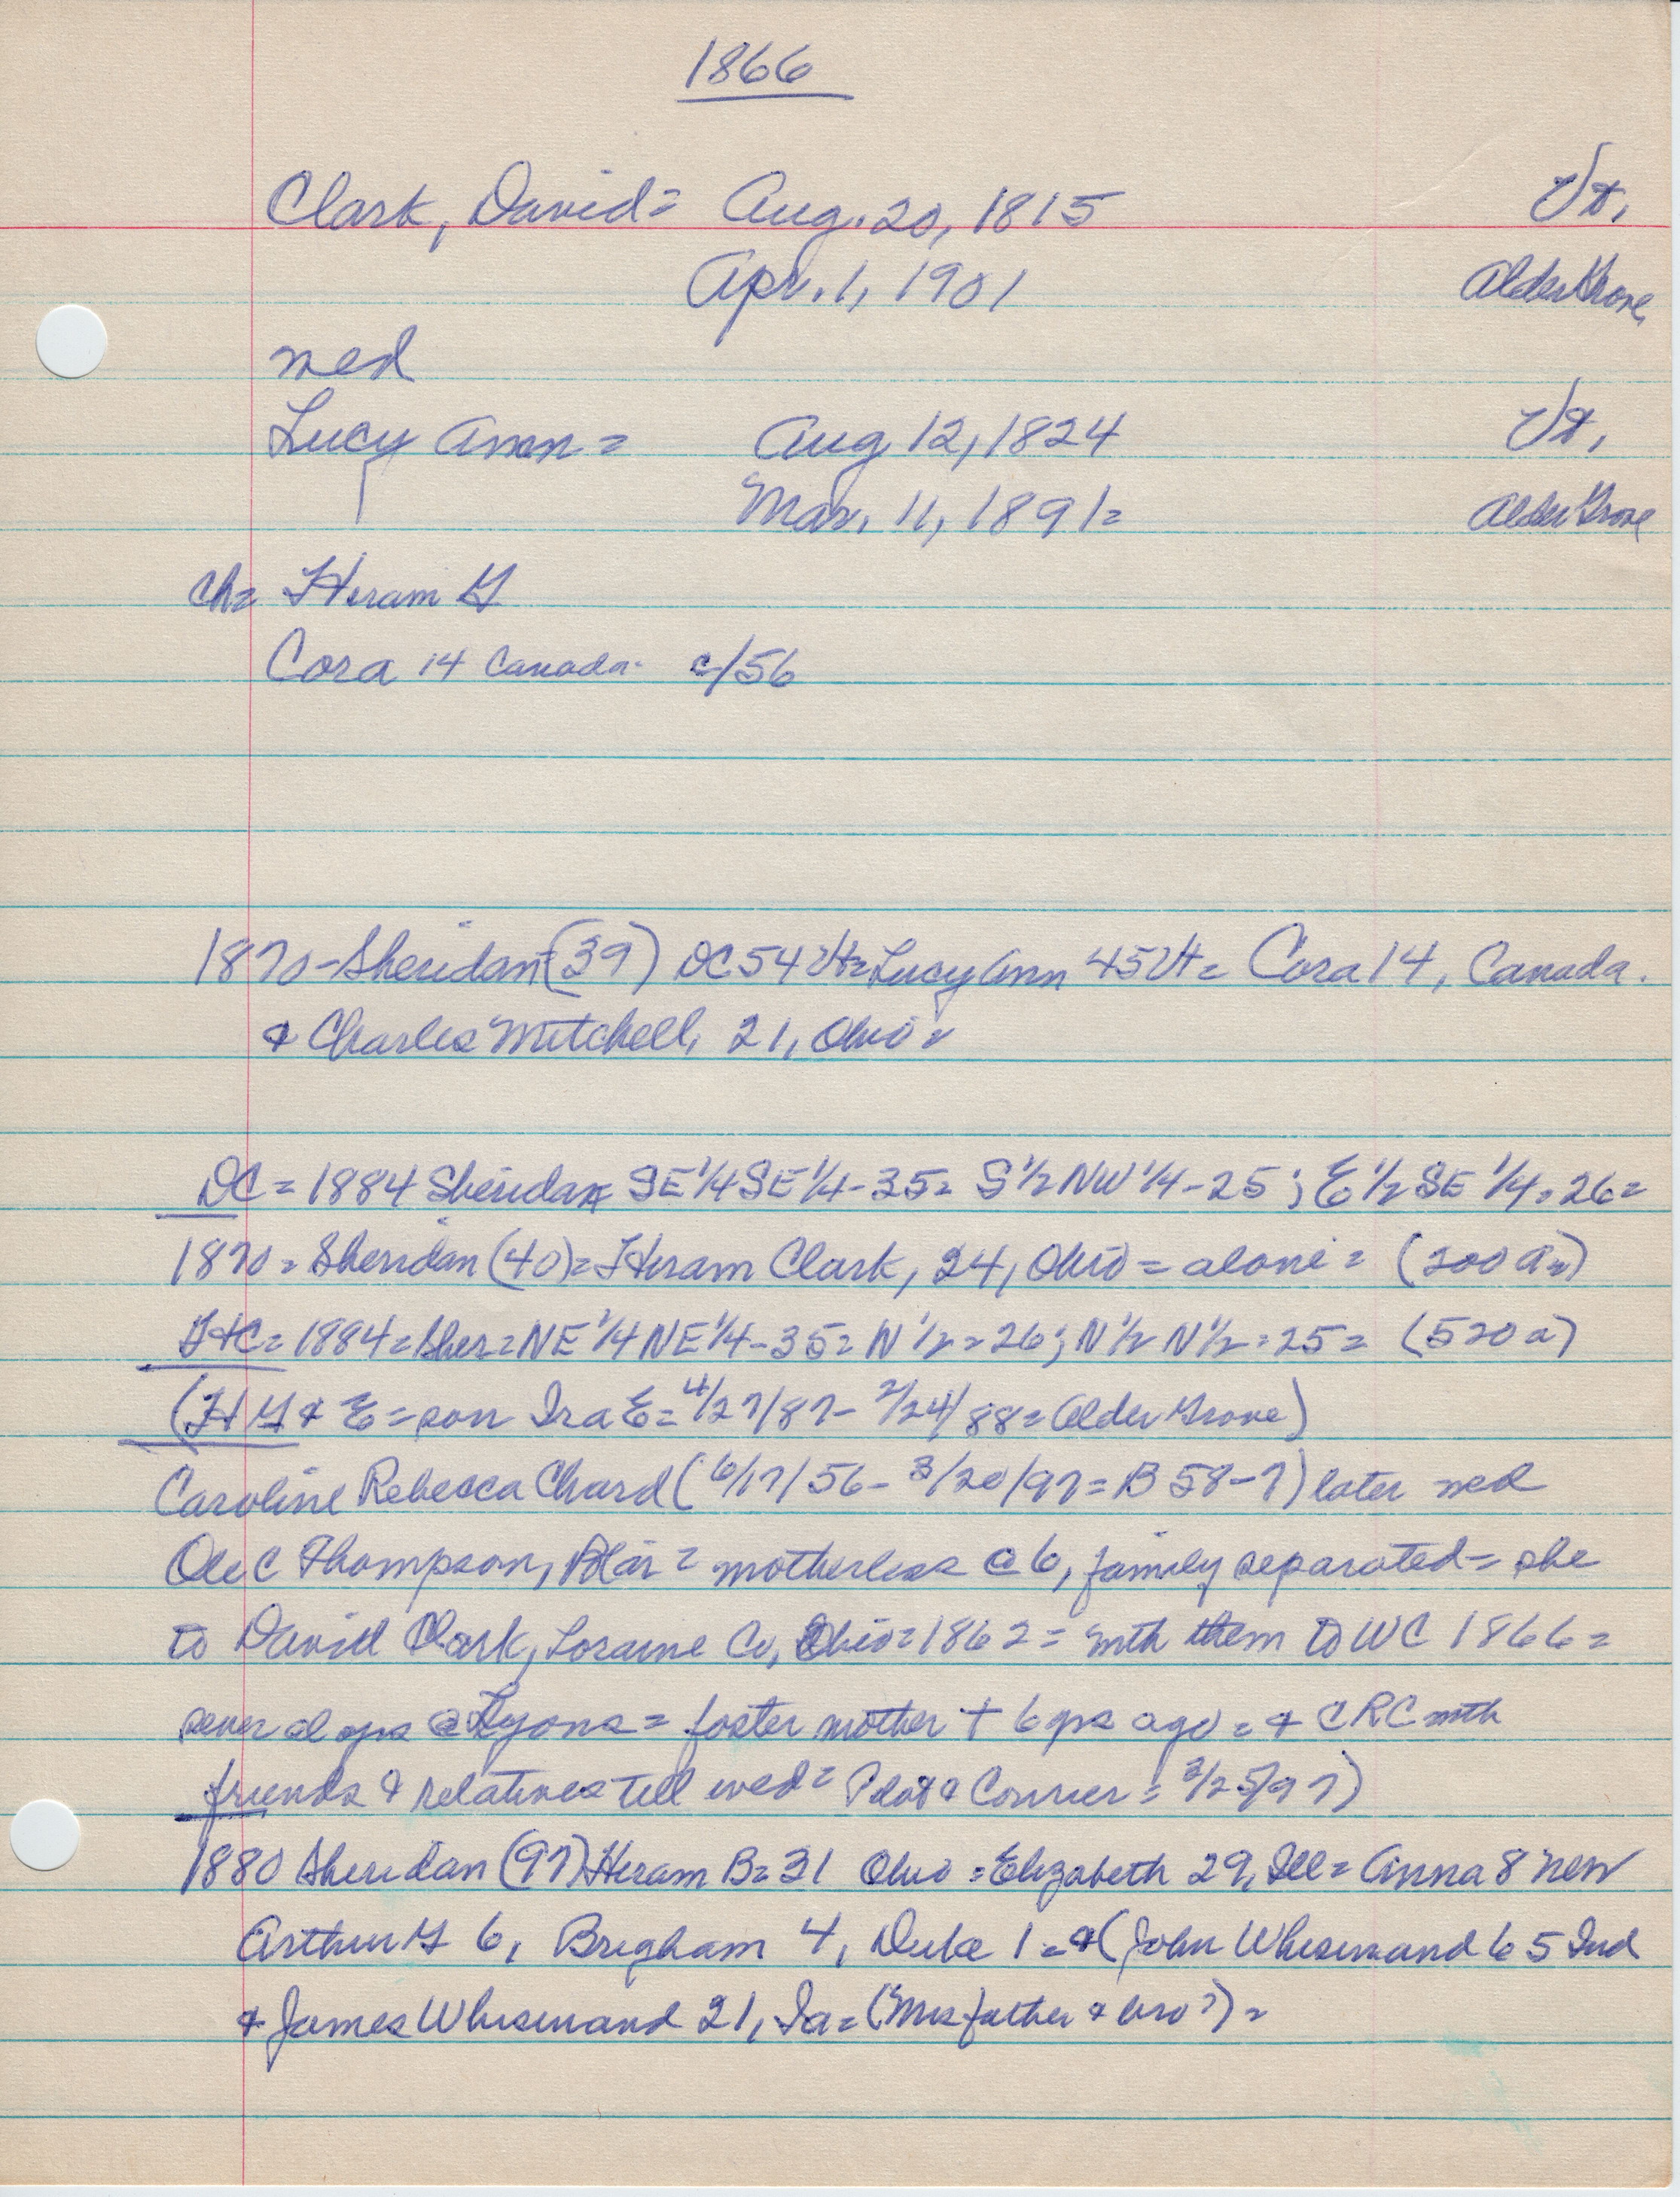 1866
Clark, David = Aug. 20, 1815 Vt.
Apr. 1, 1901 Alder Grove
med
Lucy Ann = Aug 12, 1824 Vt.
Mar. 11, 1891 = Alder Grove
ch = Hiram G
Cora 14 Canada c/56
1870 - Sheridan (39) DC 54 Vt = Lucy Ann 45 Vt = Cora 14, Canada.
& Charles Mitchell, 21, Ohio =
DC = 1884 Sheridan SE 1/4 SE 1/4 - 35 = S 1/2 NW 1/4 - 25 ; E 1/2 SE 1/4 = 26 =
1870 = Sheridan (40) = Hiram Clark, 24, Ohio = alone = (200 a =)
HC = 1884 = Sher = NE 1/4 NE 1/4 - 35 = N 1/2 = 26 ; N 1/2 N 1/2 = 25 = (520 a)
(H G & E = son Ira E = 4/27/87 - 2/24/88 = Alder Grove)
Caroline Rebecca Chard (6/17/56 - 3/20/97 = B 58-7) later med
Ole C Thompson, Blair = motherless @ 6, family separated = she
to David Clark, Loraine Co, Ohio = 1862 = with them to WC 1866 =
several yrs @ Lyons = foster mother + 6 yrs ago = & CRC with
friends & relatives till wed = Pilot & Courier = 3/25/97)
1880 Sheridan (97) Hiram B = 31 Ohio = Elizabeth 29, Ill = Anna 8 New
Arthur G 6, Brigham 4, Duke 1 = & (John Whisenand 65 Ind
& James Whisenand 21, Ia = (Mrs father & bro?) =